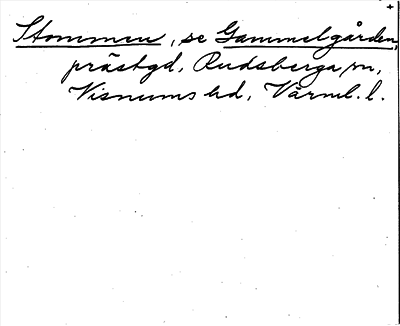 Stommen, se Gammelgården,
prästgd, Rudsberga sn,
Visnums hd, Värml. l.